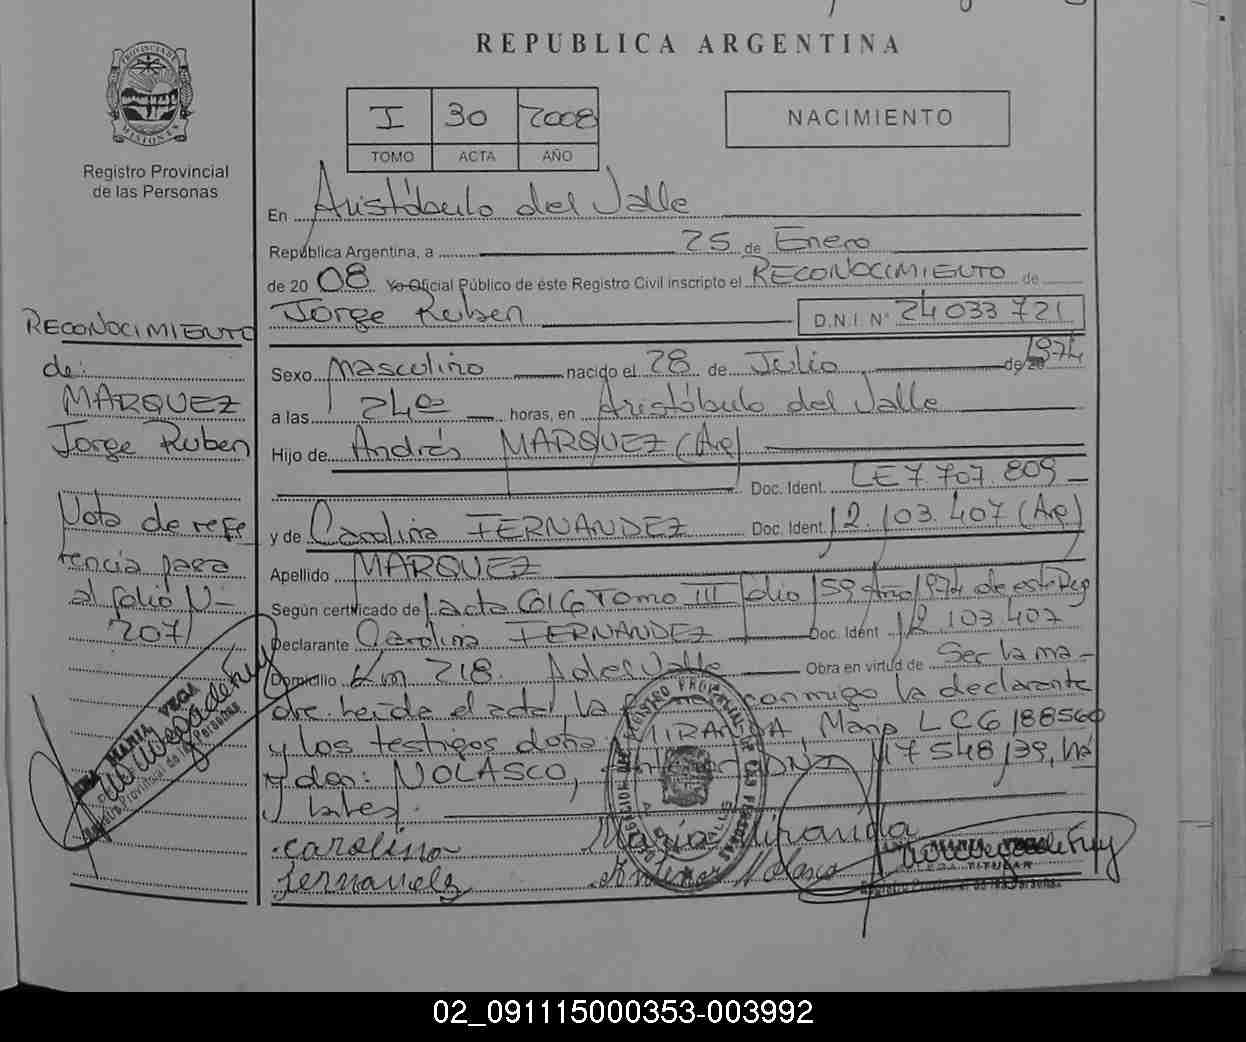 REPUBLICA ARGENTINA
PROVINCIA DE MISIONES
Registro Provincial
de las Personas
I 30 2008
TOMO ACTA AÑO
NACIMIENTO
En Aristóbulo del Valle
República Argentina, a 25 de Enero
de 20 08 Yo Oficial Público de éste Registro Civil inscripto el RECONOCIMIENTO de
Jorge Ruben D.N.I. N° 24 033 721
Sexo Masculino nacido el 28 de Julio de 20 1974
a las 24 horas, en Aristóbulo del Valle
Hijo de Andrés MARQUEZ (Arg)
Doc. Ident. LE 7.707.809
y de Carolina FERNANDEZ Doc. Ident. 12.103.407 (Arg)
Apellido MARQUEZ
Según certificado de acta 616 Tomo III folio 159 Año 1974 de este Reg
Declarante Carolina FERNANDEZ Doc. Ident 12 103 407
Domicilio Km 218. A del Valle Obra en virtud de Ser la ma-
dre. leida el acta, la conmigo la declarante
y los testigos doña MIRANDA, Maria LC 6 188560
y don: NOLASCO, DNI 17 548 139, há
biles.
carolina
fernandez
Maria Miranda
Antenor Nolasco
RECONOCIMIENTO
de:
MARQUEZ
Jorge Ruben
Nota de refe
rencia para
al folio N-
207
MARIA VEGA
Registro Provincial de las Personas
MARIA VEGA
TITULAR
Registro Provincial de las Personas
02_091115000353-003992